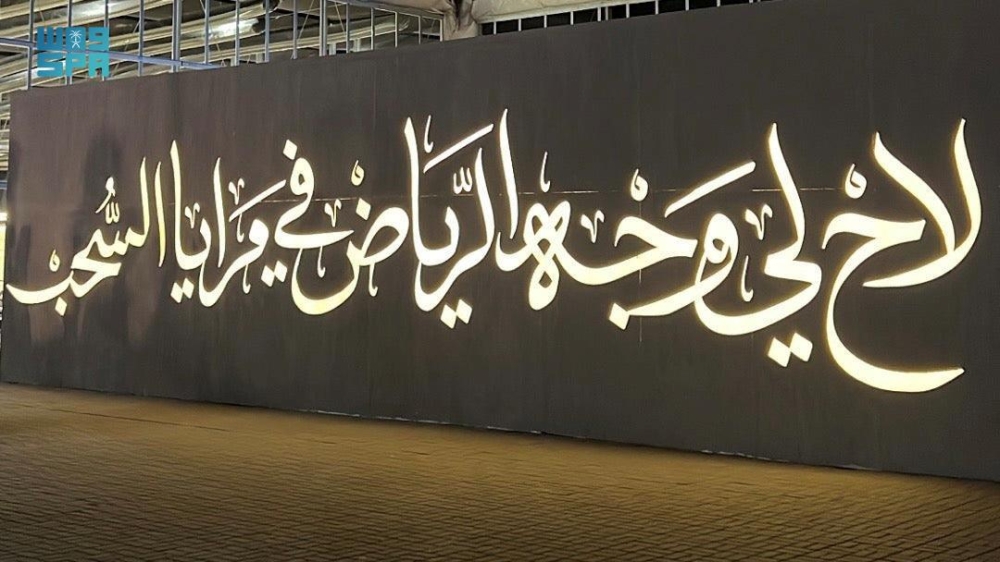 واس
SPA
لاح لي وجه الرياض في مرايا السُّحب